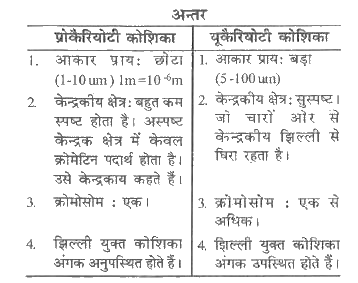 अन्तर
प्रोकैरियोटी कोशिका
1. आकार प्राय: छोटा
(1-10 um) 1m=10⁻⁶m
2. केन्द्रकीय क्षेत्र: बहुत कम
स्पष्ट होता है। अस्पष्ट
केन्द्रक क्षेत्र में केवल
क्रोमेटिन पदार्थ होता है।
उसे केन्द्रकाय कहते हैं।
3. क्रोमोसोम : एक।
4. झिल्ली युक्त कोशिका
अंगक अनुपस्थित होते हैं।
यूकैरियोटी कोशिका
1. आकार प्राय: बड़ा
(5-100um)
2. केन्द्रकीय क्षेत्र: सुस्पष्ट।
जो चारों ओर से
केन्द्रकीय झिल्ली से
घिरा रहता है।
3. क्रोमोसोम : एक से
अधिक।
4. झिल्ली युक्त कोशिका
अंगक उपस्थित होते हैं।